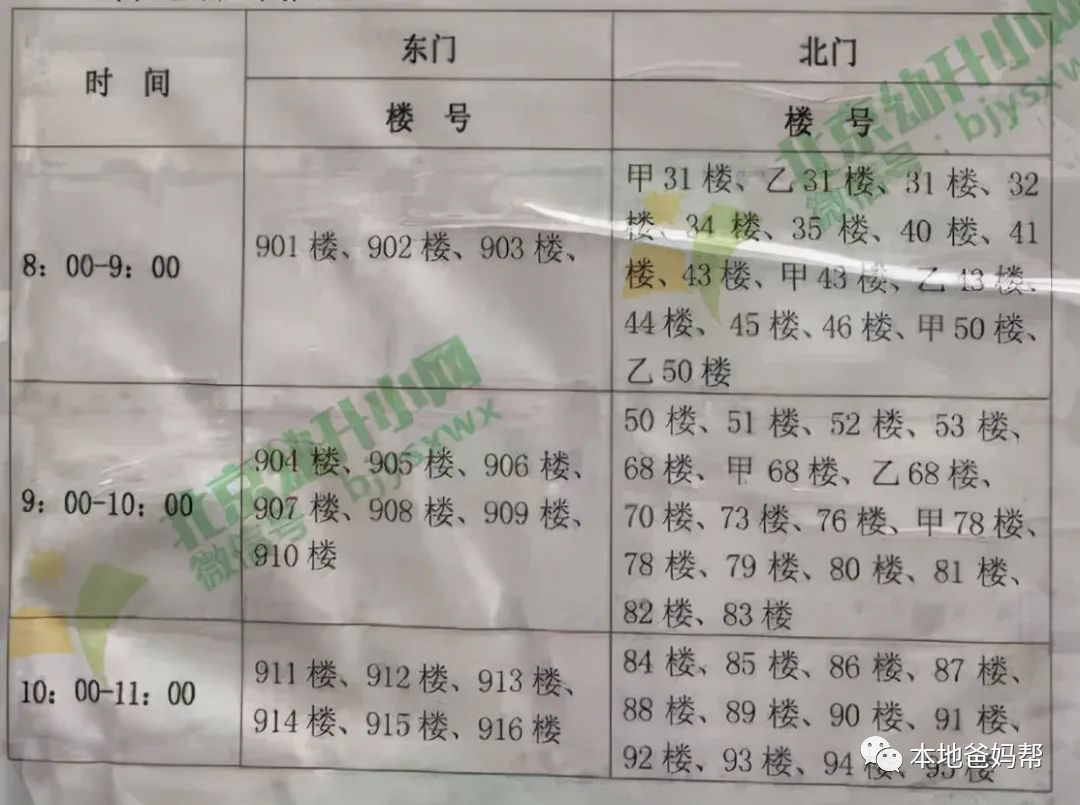 时 间
东门
北门
楼 号
楼 号
8：00-9：00
901 楼、902 楼、903 楼、
甲 31 楼、乙 31 楼、31 楼、32
楼、34 楼、35 楼、40 楼、41
楼、43 楼、甲 43 楼、乙 43 楼、
44 楼、45 楼、46 楼、甲 50 楼、
乙 50 楼
9：00-10：00
904 楼、905 楼、906 楼、
907 楼、908 楼、909 楼、
910 楼
50 楼、51 楼、52 楼、53 楼、
68 楼、甲 68 楼、乙 68 楼、
70 楼、73 楼、76 楼、甲 78 楼、
78 楼、79 楼、80 楼、81 楼、
82 楼、83 楼
10：00-11：00
911 楼、912 楼、913 楼、
914 楼、915 楼、916 楼
84 楼、85 楼、86 楼、87 楼、
88 楼、89 楼、90 楼、91 楼、
92 楼、93 楼、94 楼、95 楼
北京幼升小网
微信号：bjysxwx
北京幼升小网
微信号 bjysxwx
本地爸妈帮